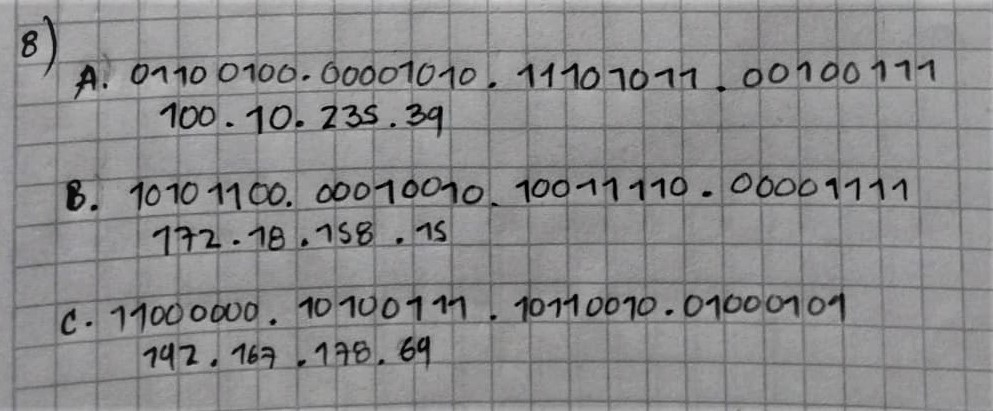 8)
A. 01100100.00001010.11101011.00100111
100.10.235.39
B. 10101100.00010010.10011110.00001111
172.18.158.15
C. 11000000.10100111.10110010.01000101
192.167.178.69